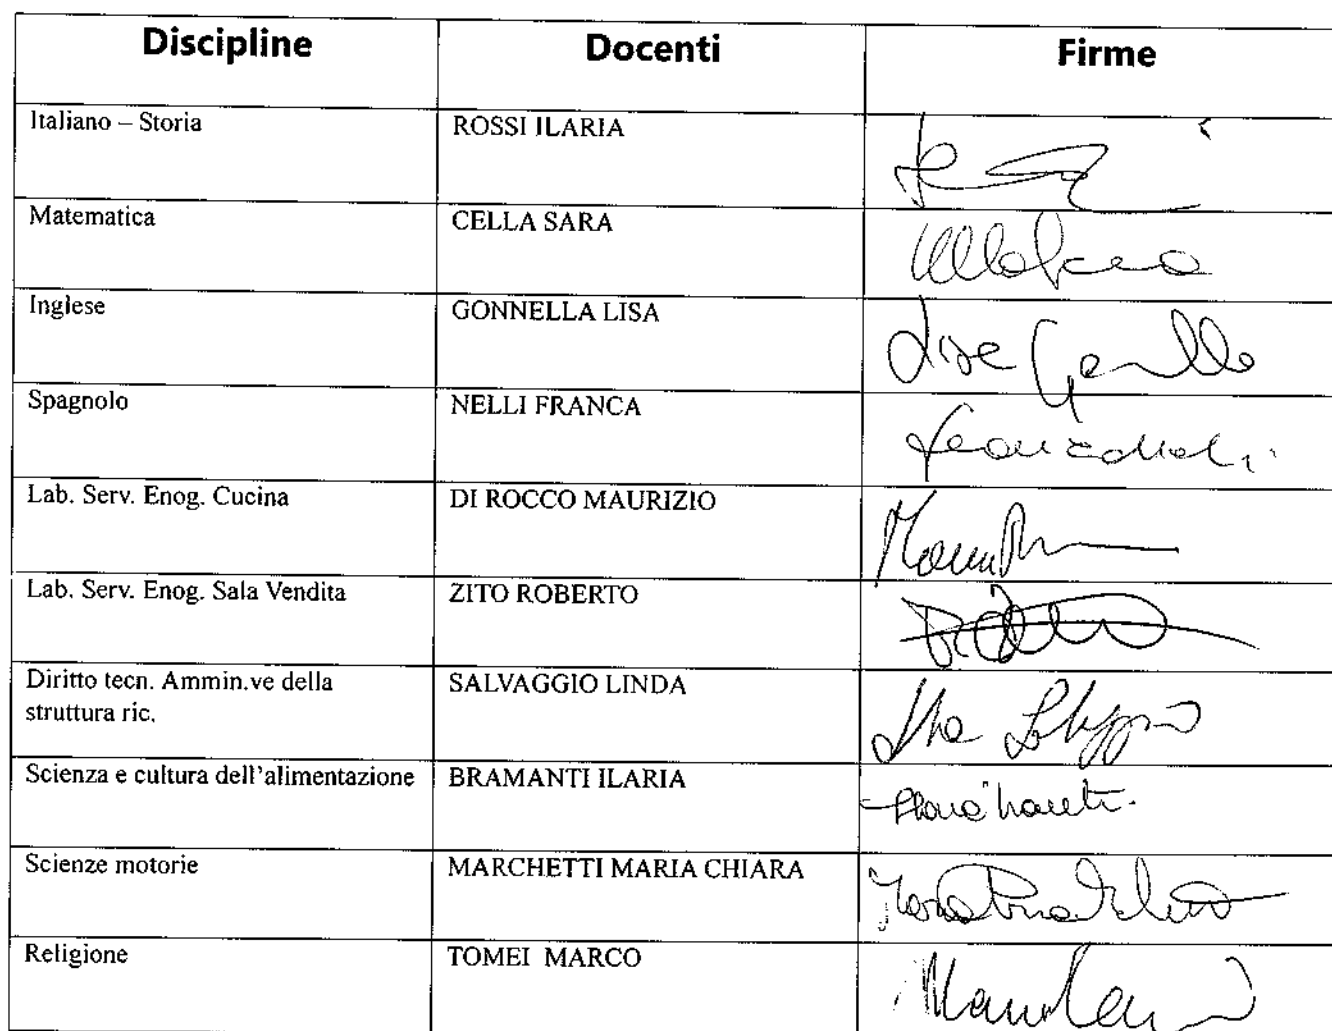 Discipline Docenti Firme
Italiano – Storia ROSSI ILARIA
Matematica CELLA SARA
Inglese GONNELLA LISA
Spagnolo NELLI FRANCA
Lab. Serv. Enog. Cucina DI ROCCO MAURIZIO
Lab. Serv. Enog. Sala Vendita ZITO ROBERTO
Diritto tecn. Ammin.ve della SALVAGGIO LINDA
struttura ric.
Scienza e cultura dell'alimentazione BRAMANTI ILARIA
Scienze motorie MARCHETTI MARIA CHIARA
Religione TOMEI MARCO